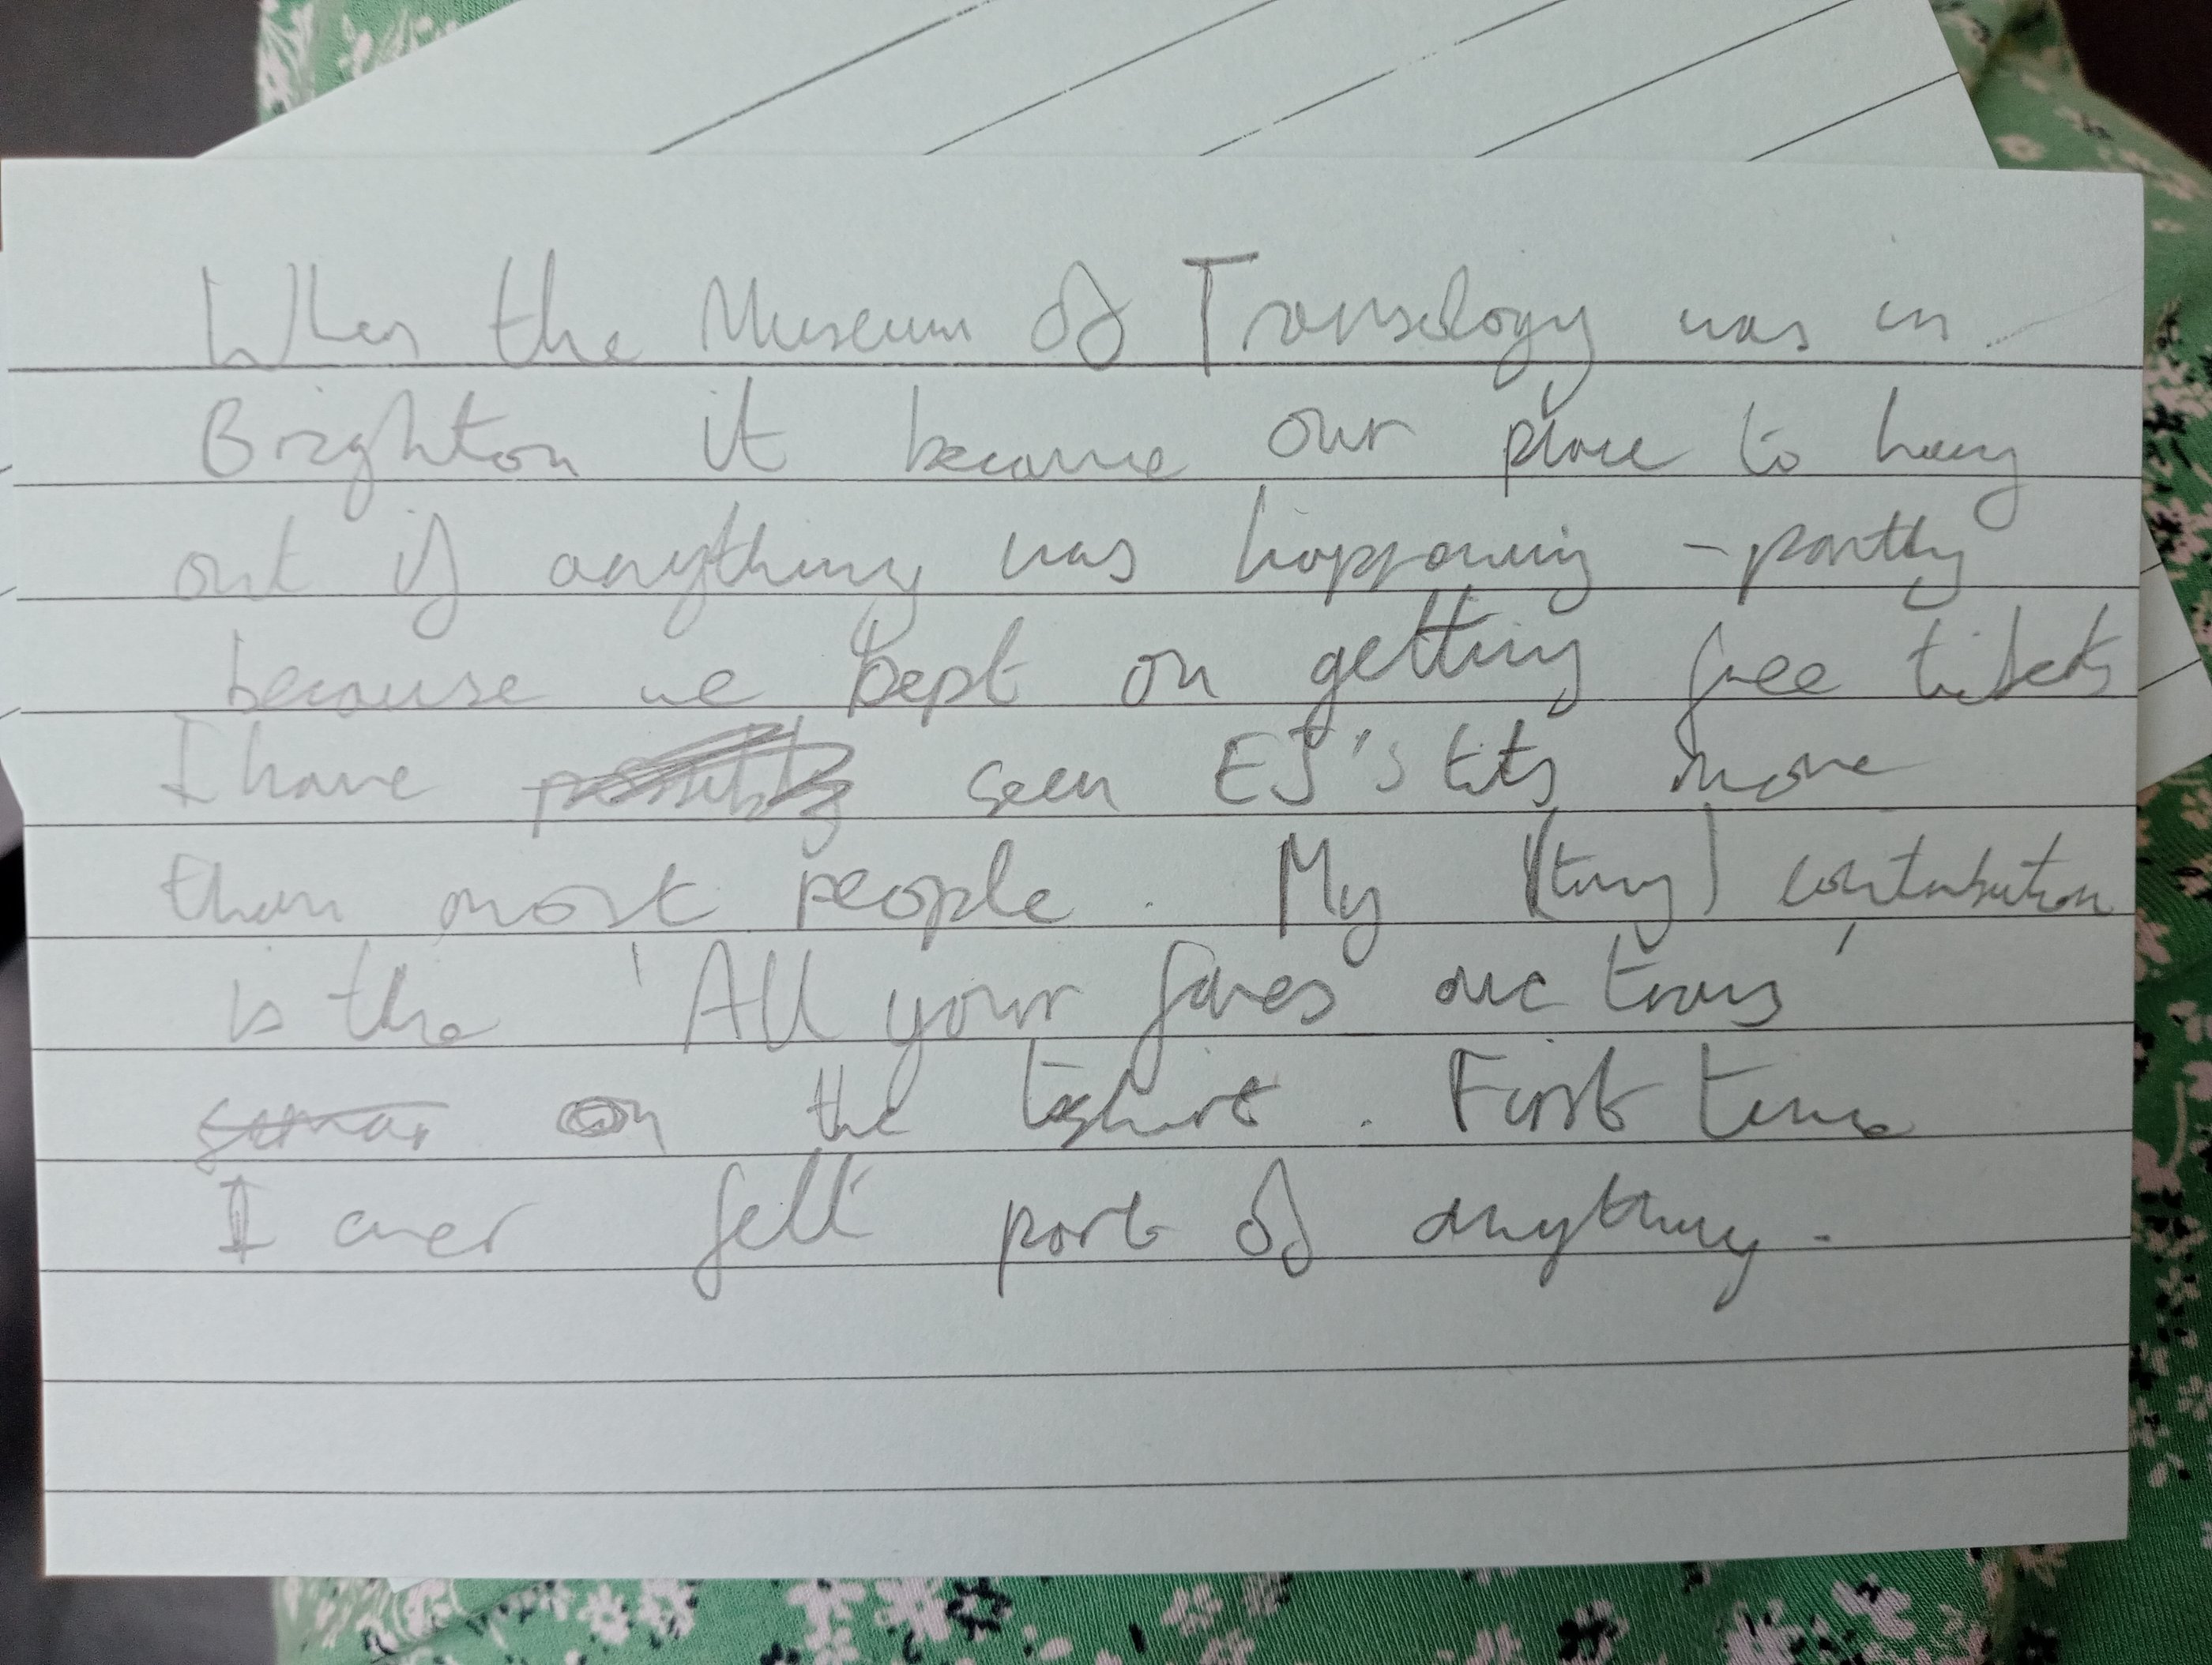 When the Museum of Transology was in
Brighton it became our place to hang
out if anything was happening - partly
because we kept on getting free tickets
I have seen EJ's tits more
than most people. My (tiny) contribution
is the 'All your faves are trans'
on the tshirt. First time
I ever felt part of anything.